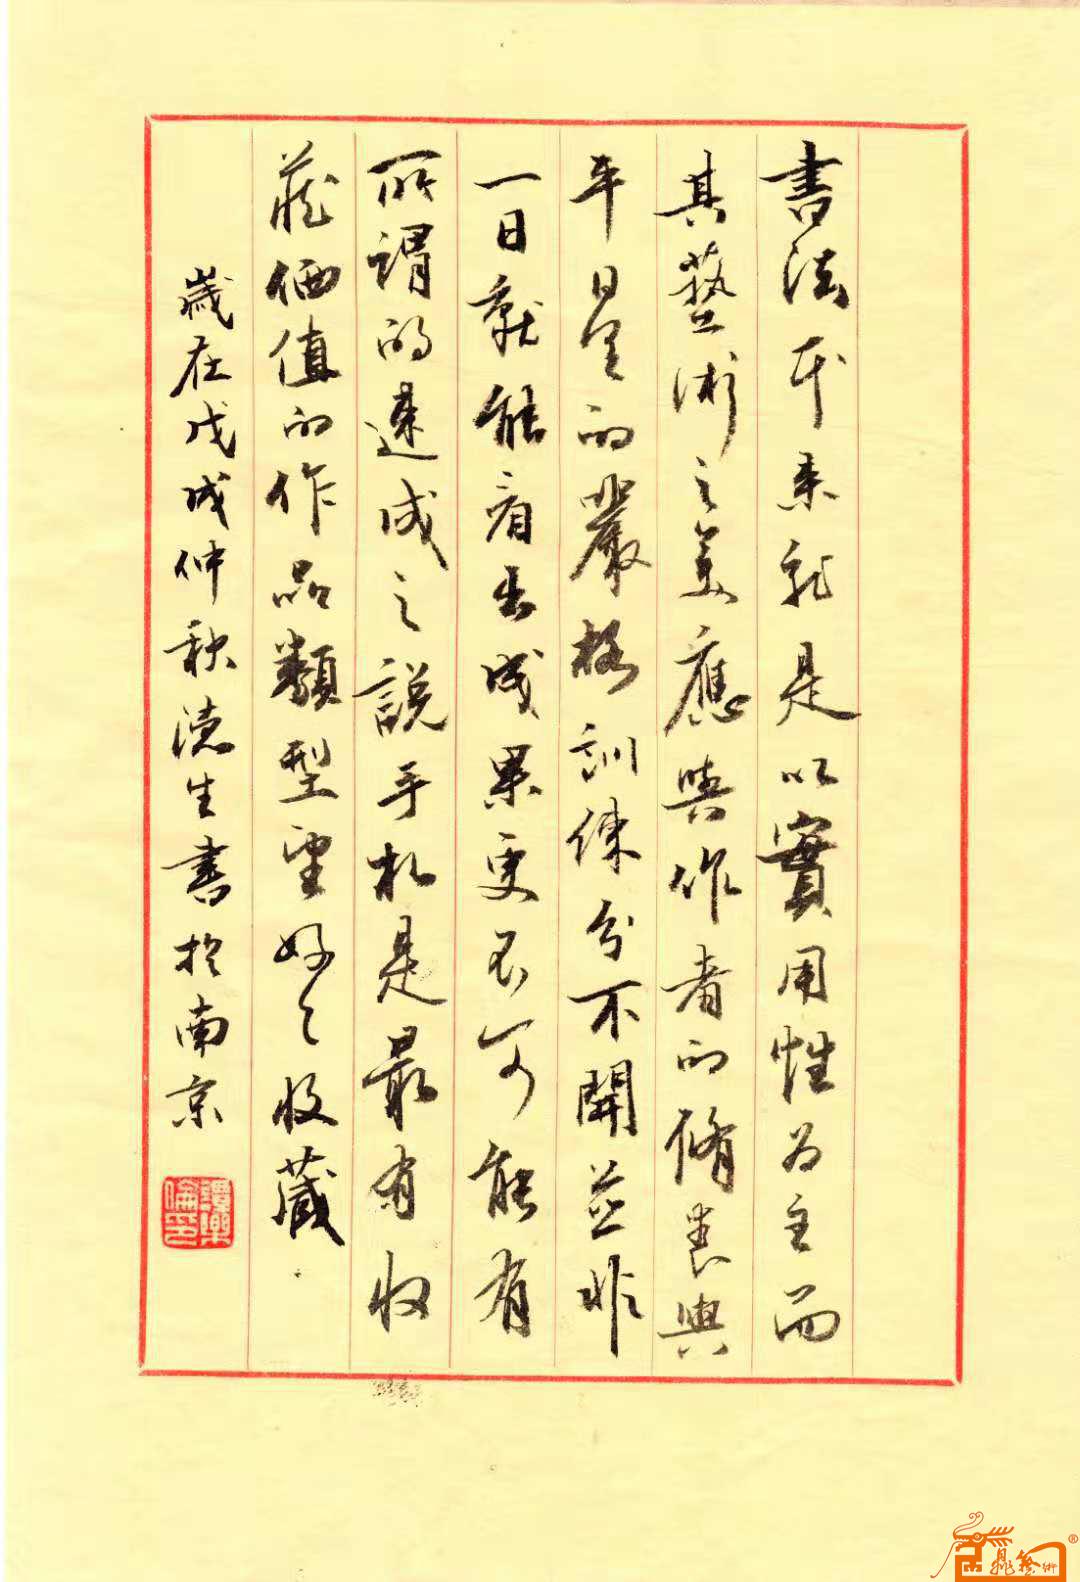 書法本来就是以實用性为主而
其藝術之美應與作者的脩養與
平日里的嚴格訓練分不開並非
一日就能看出成果更不可能有
所謂的速成之說手札是最有收
藏価值的作品類型望好之收藏
歲在戊戌仲秋德生書於南京